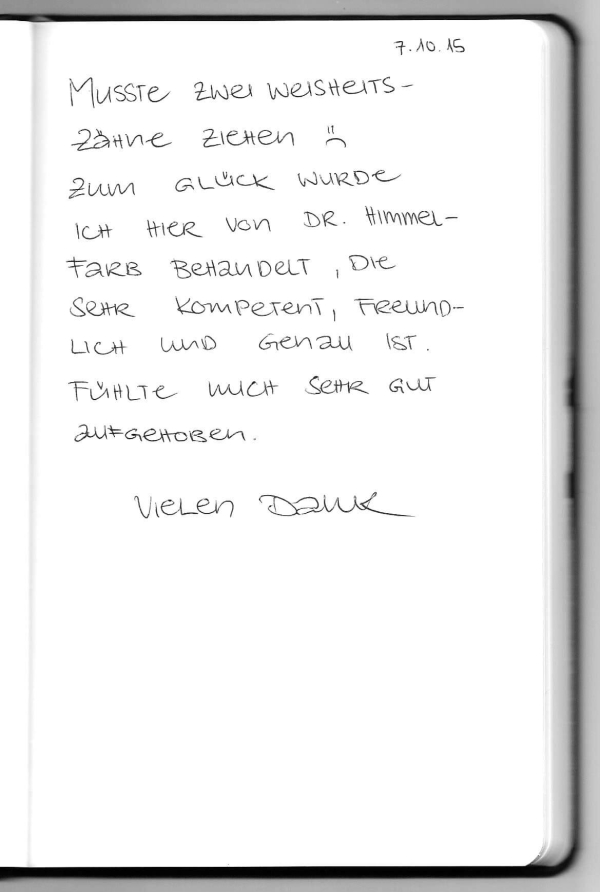 7.10.15
Musste zwei Weisheits-
zähne ziehen :(
zum Glück wurde
ich hier von Dr. Himmel-
farb behandelt, die
sehr kompetent, freund-
lich und genau ist.
Fühlte mich sehr gut
aufgehoben.
Vielen Dank